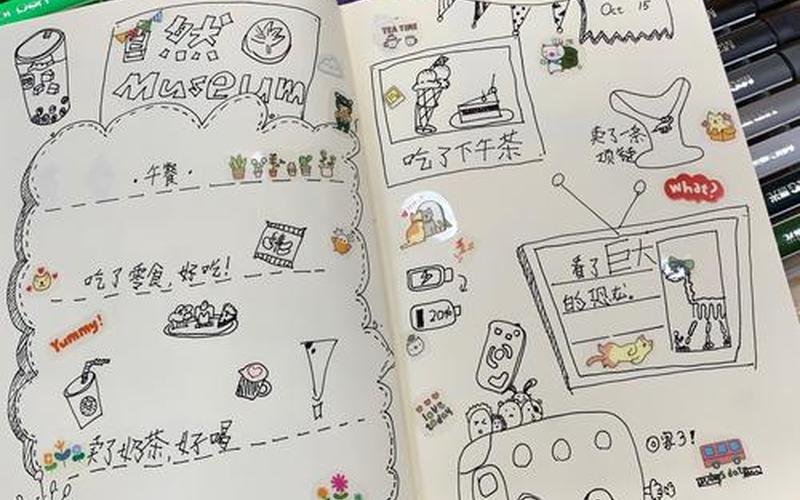 Museum
·午餐·
吃了零食,好吃!
Yummy!
卖了奶茶,好喝
TEA TIME
Oct 15
吃了下午茶
卖了一条
项链
what?
看了巨大
的恐龙.
20%
love
today
回家了!